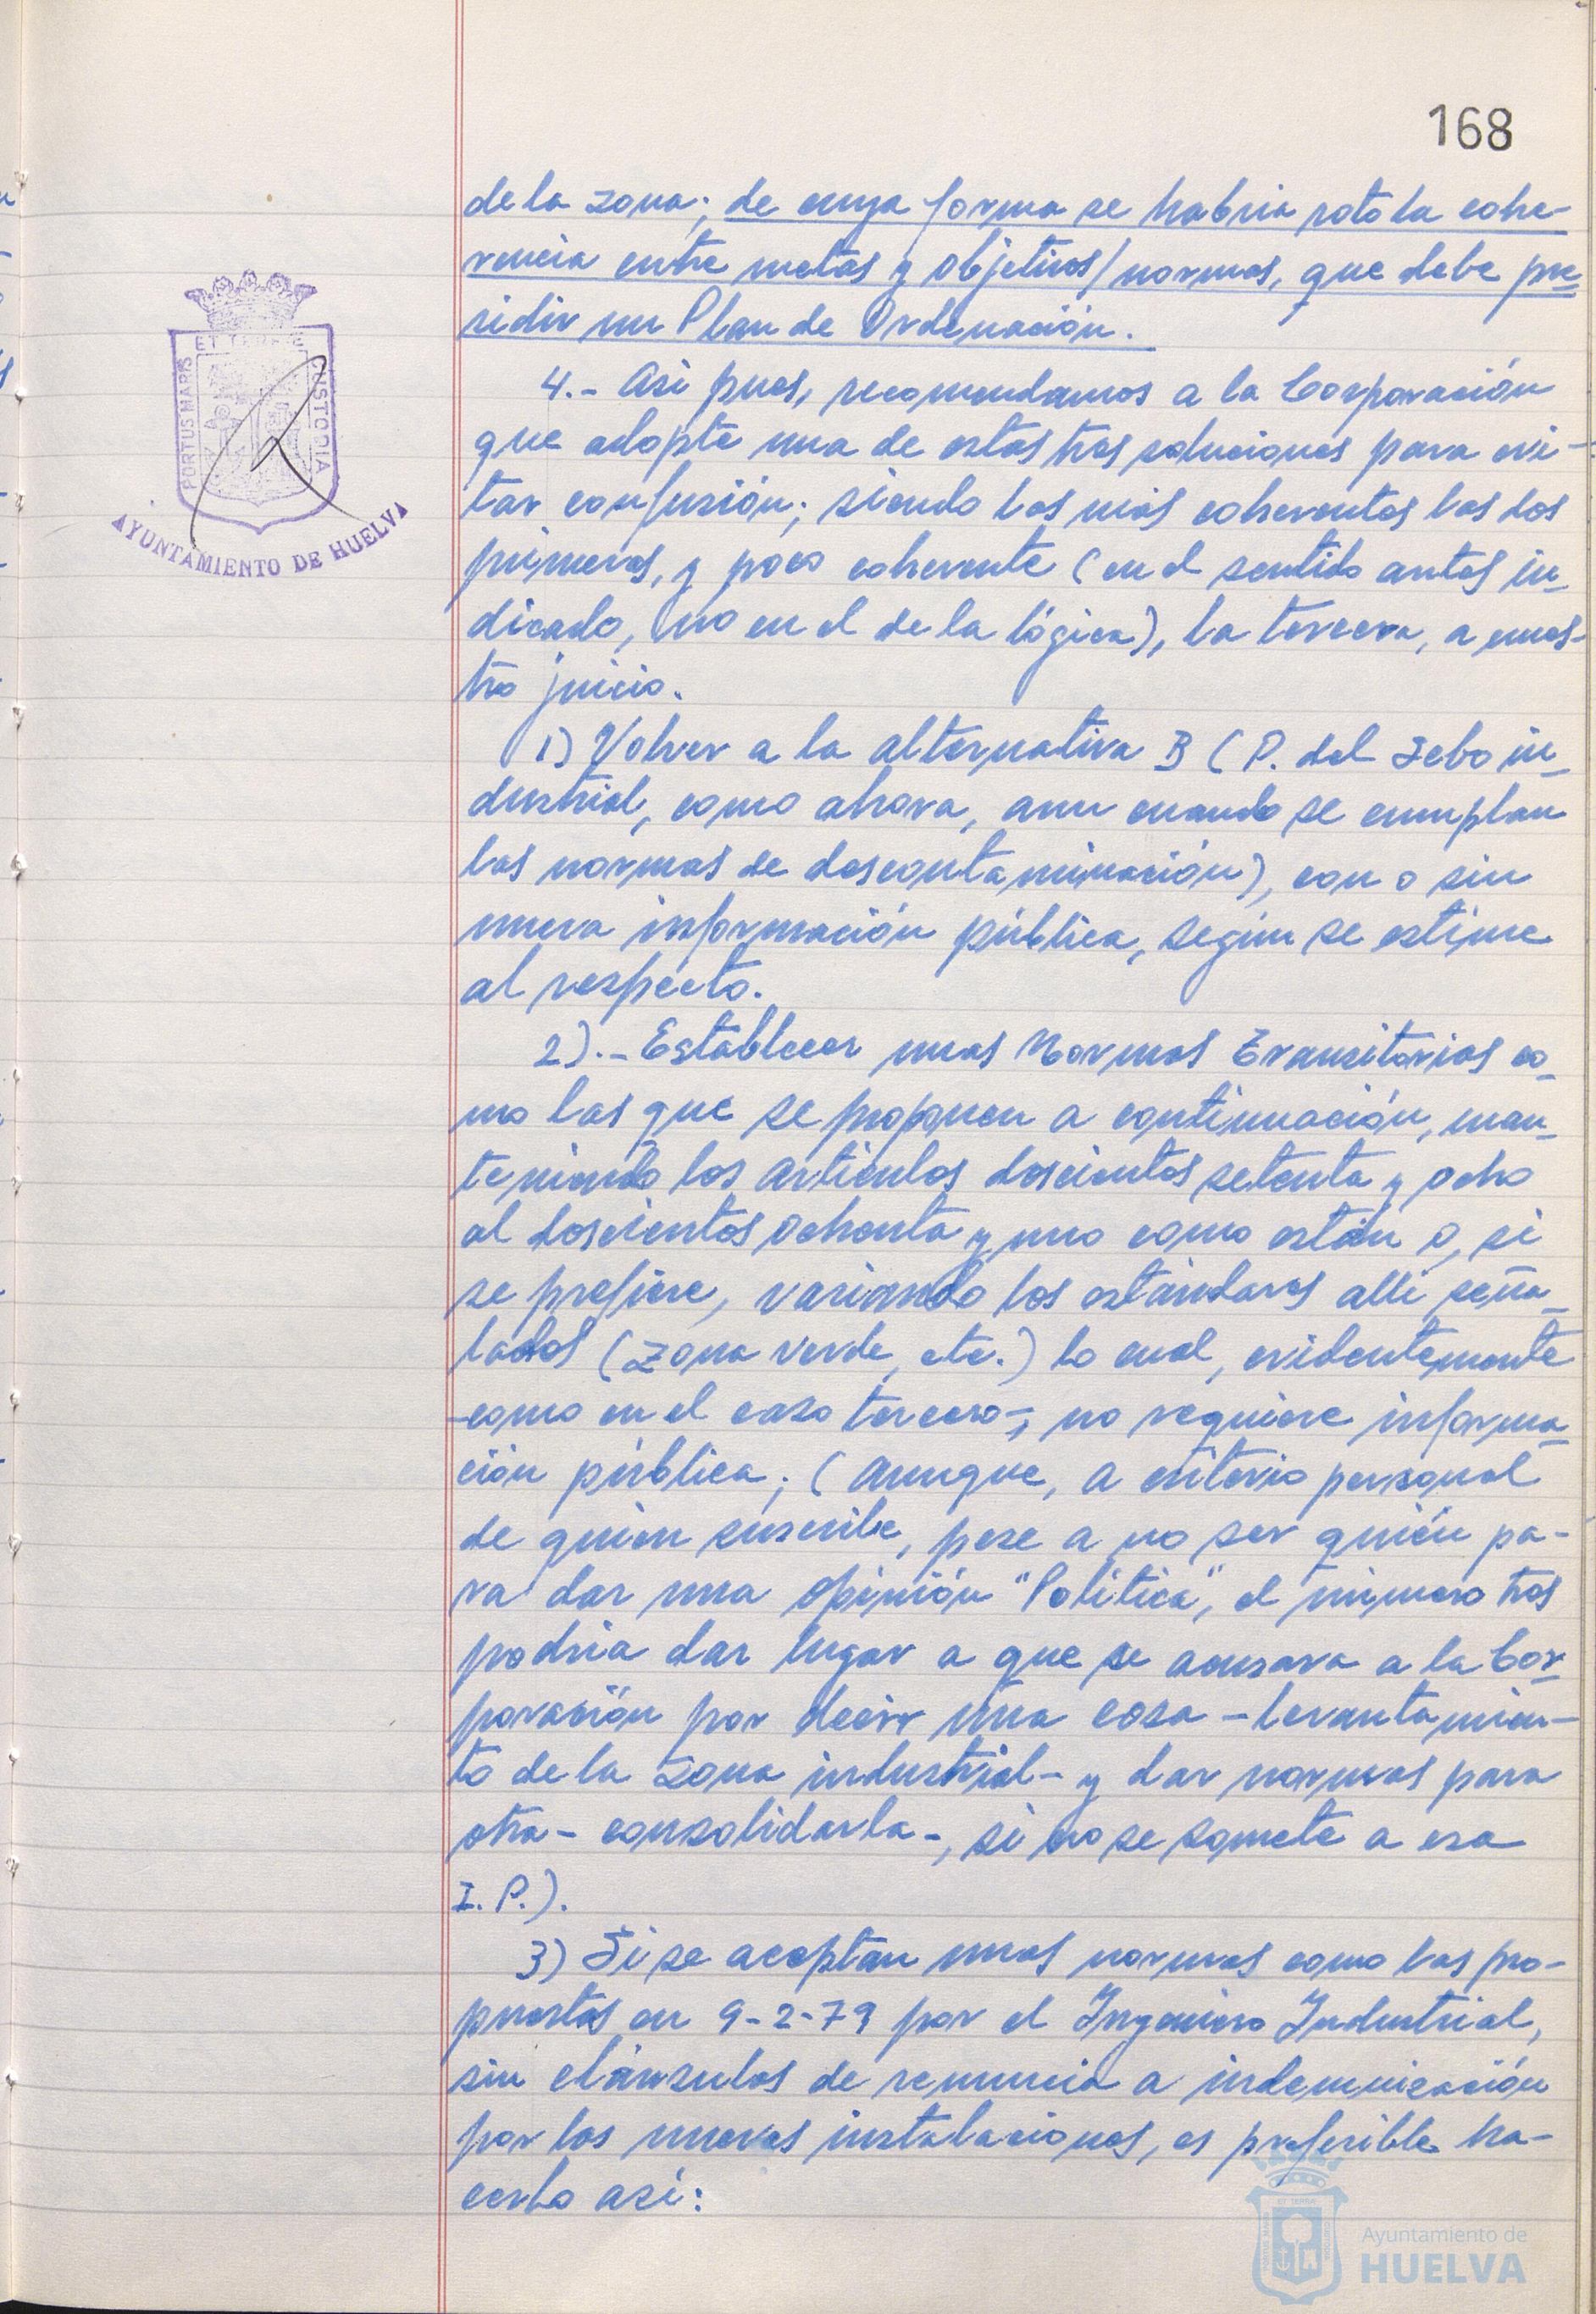 168
de la zona; de cuya forma se habria roto la cohe-
rencia entre metas y objetivos/normas, que debe pre-
sidir un Plan de Ordenación.
4.- Asi pues, recomendamos a la Corporación
que adopte una de estas tres soluciones para evi-
tar confusión; siendo las más coherentes las dos
primeras, y poco coherente (en el sentido antes in-
dicado, no en el de la lógica), la tercera, a nues-
tro juicio.
1) Volver a la alternativa B (P. del Sebo in-
dustrial, como ahora, aun cuando se cumplan
las normas de descontaminación), con o sin
nueva información pública, según se estime
al respecto.
2).- Establecer unas Normas Transitorias co-
mo las que se proponen a continuación, man-
teniendo los artículos doscientos setenta y ocho
al doscientos ochenta y uno como están o, si
se prefiere, variando los estándares alli seña-
lados (zona verde, etc.) lo cual, evidentemente
-como en el caso tercero-, no requiere informa-
ción pública; (aunque, a criterio personal
de quien suscribe, pese a no ser quién pa-
ra dar una opinión "Politica", el número tres
podria dar lugar a que se acusara a la Cor-
poración por decir una cosa -levantamien-
to de la zona industrial- y dar normas para
otra- consolidarla-, si no se somete a esa
I. P.).
3) Si se aceptan unas normas como las pro-
puestas en 9-2-79 por el Ingeniero Industrial,
sin cláusulas de renuncia a indemnización
por las nuevas instalaciones, es preferible ha-
cerlo asi:
ET TERRAE
PORTUS MARIS
CUSTODIA
AYUNTAMIENTO DE HUELVA
Ayuntamiento de
HUELVA